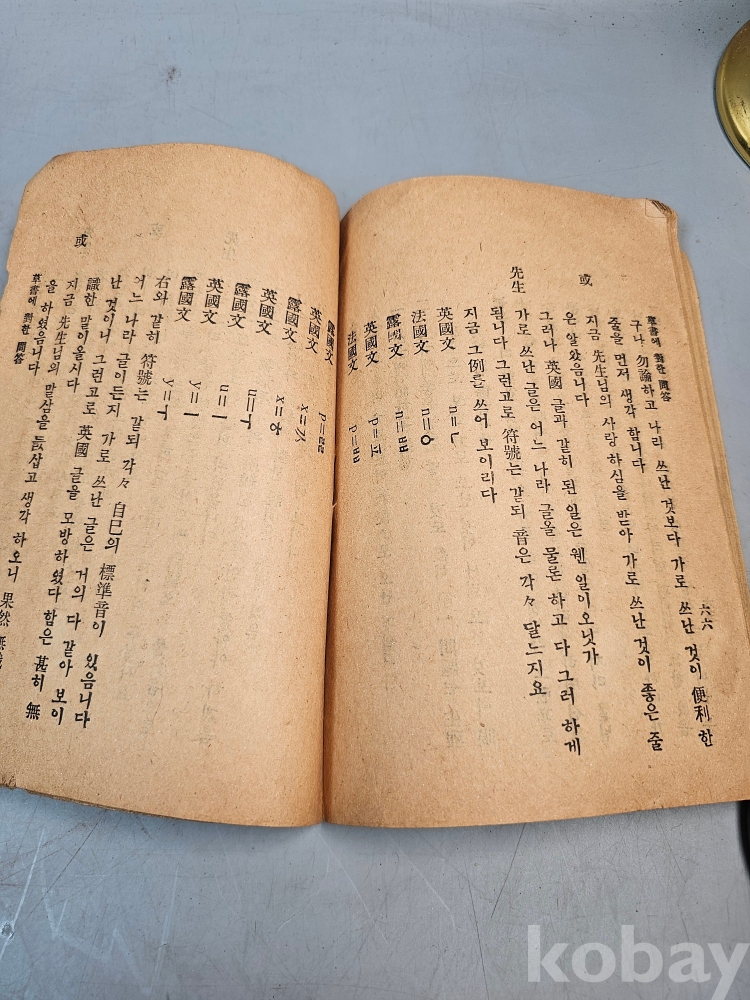 草書에 對한 問答
六六
구나 勿論하고 나리 쓰난 것보다 가로 쓰난 것이 便利한
줄을 먼저 생각 합니다
或
지금 先生님의 사랑 하심을 받아 가로 쓰난것이 좋은 줄
은 알았음니다
그러나 英國 글과 같히 된 일은 웬 일이오닛가
先生
가로 쓰난 글은 어느 나라 글올 물론 하고 다 그러 하게
됩니다 그런고로 符號는 같되 音은 각々 달느지요
지금 그 例를 쓰어 보이리다
英國文 n=ㄴ
法國文 n=ㅇ
露國文 n=ㅃ
英國文 p=ㅍ
法國文 p=ㅃ
露國文 p=ㄹㄹ
英國文 x=ㄱㅅ
露國文 x=ㅎ
英國文 u=ㅜ
露國文 u=ㅣ
英國文 y=ㅣ
露國文 y=ㅜ
右와 같히 符號는 같되 각々 自己의 標準音이 있음니다
어느 나라 글이든지 가로 쓰난 글은 거의 다 같아 보이
난 것이니 그런고로 英國 글을 모방하였다 함은 甚히 無
識한 말이올시다
或
지금 先生님의 말삼을 듮삽고 생각 하오니 果然
을 하였음니다
草書에 對한 問答
kobay